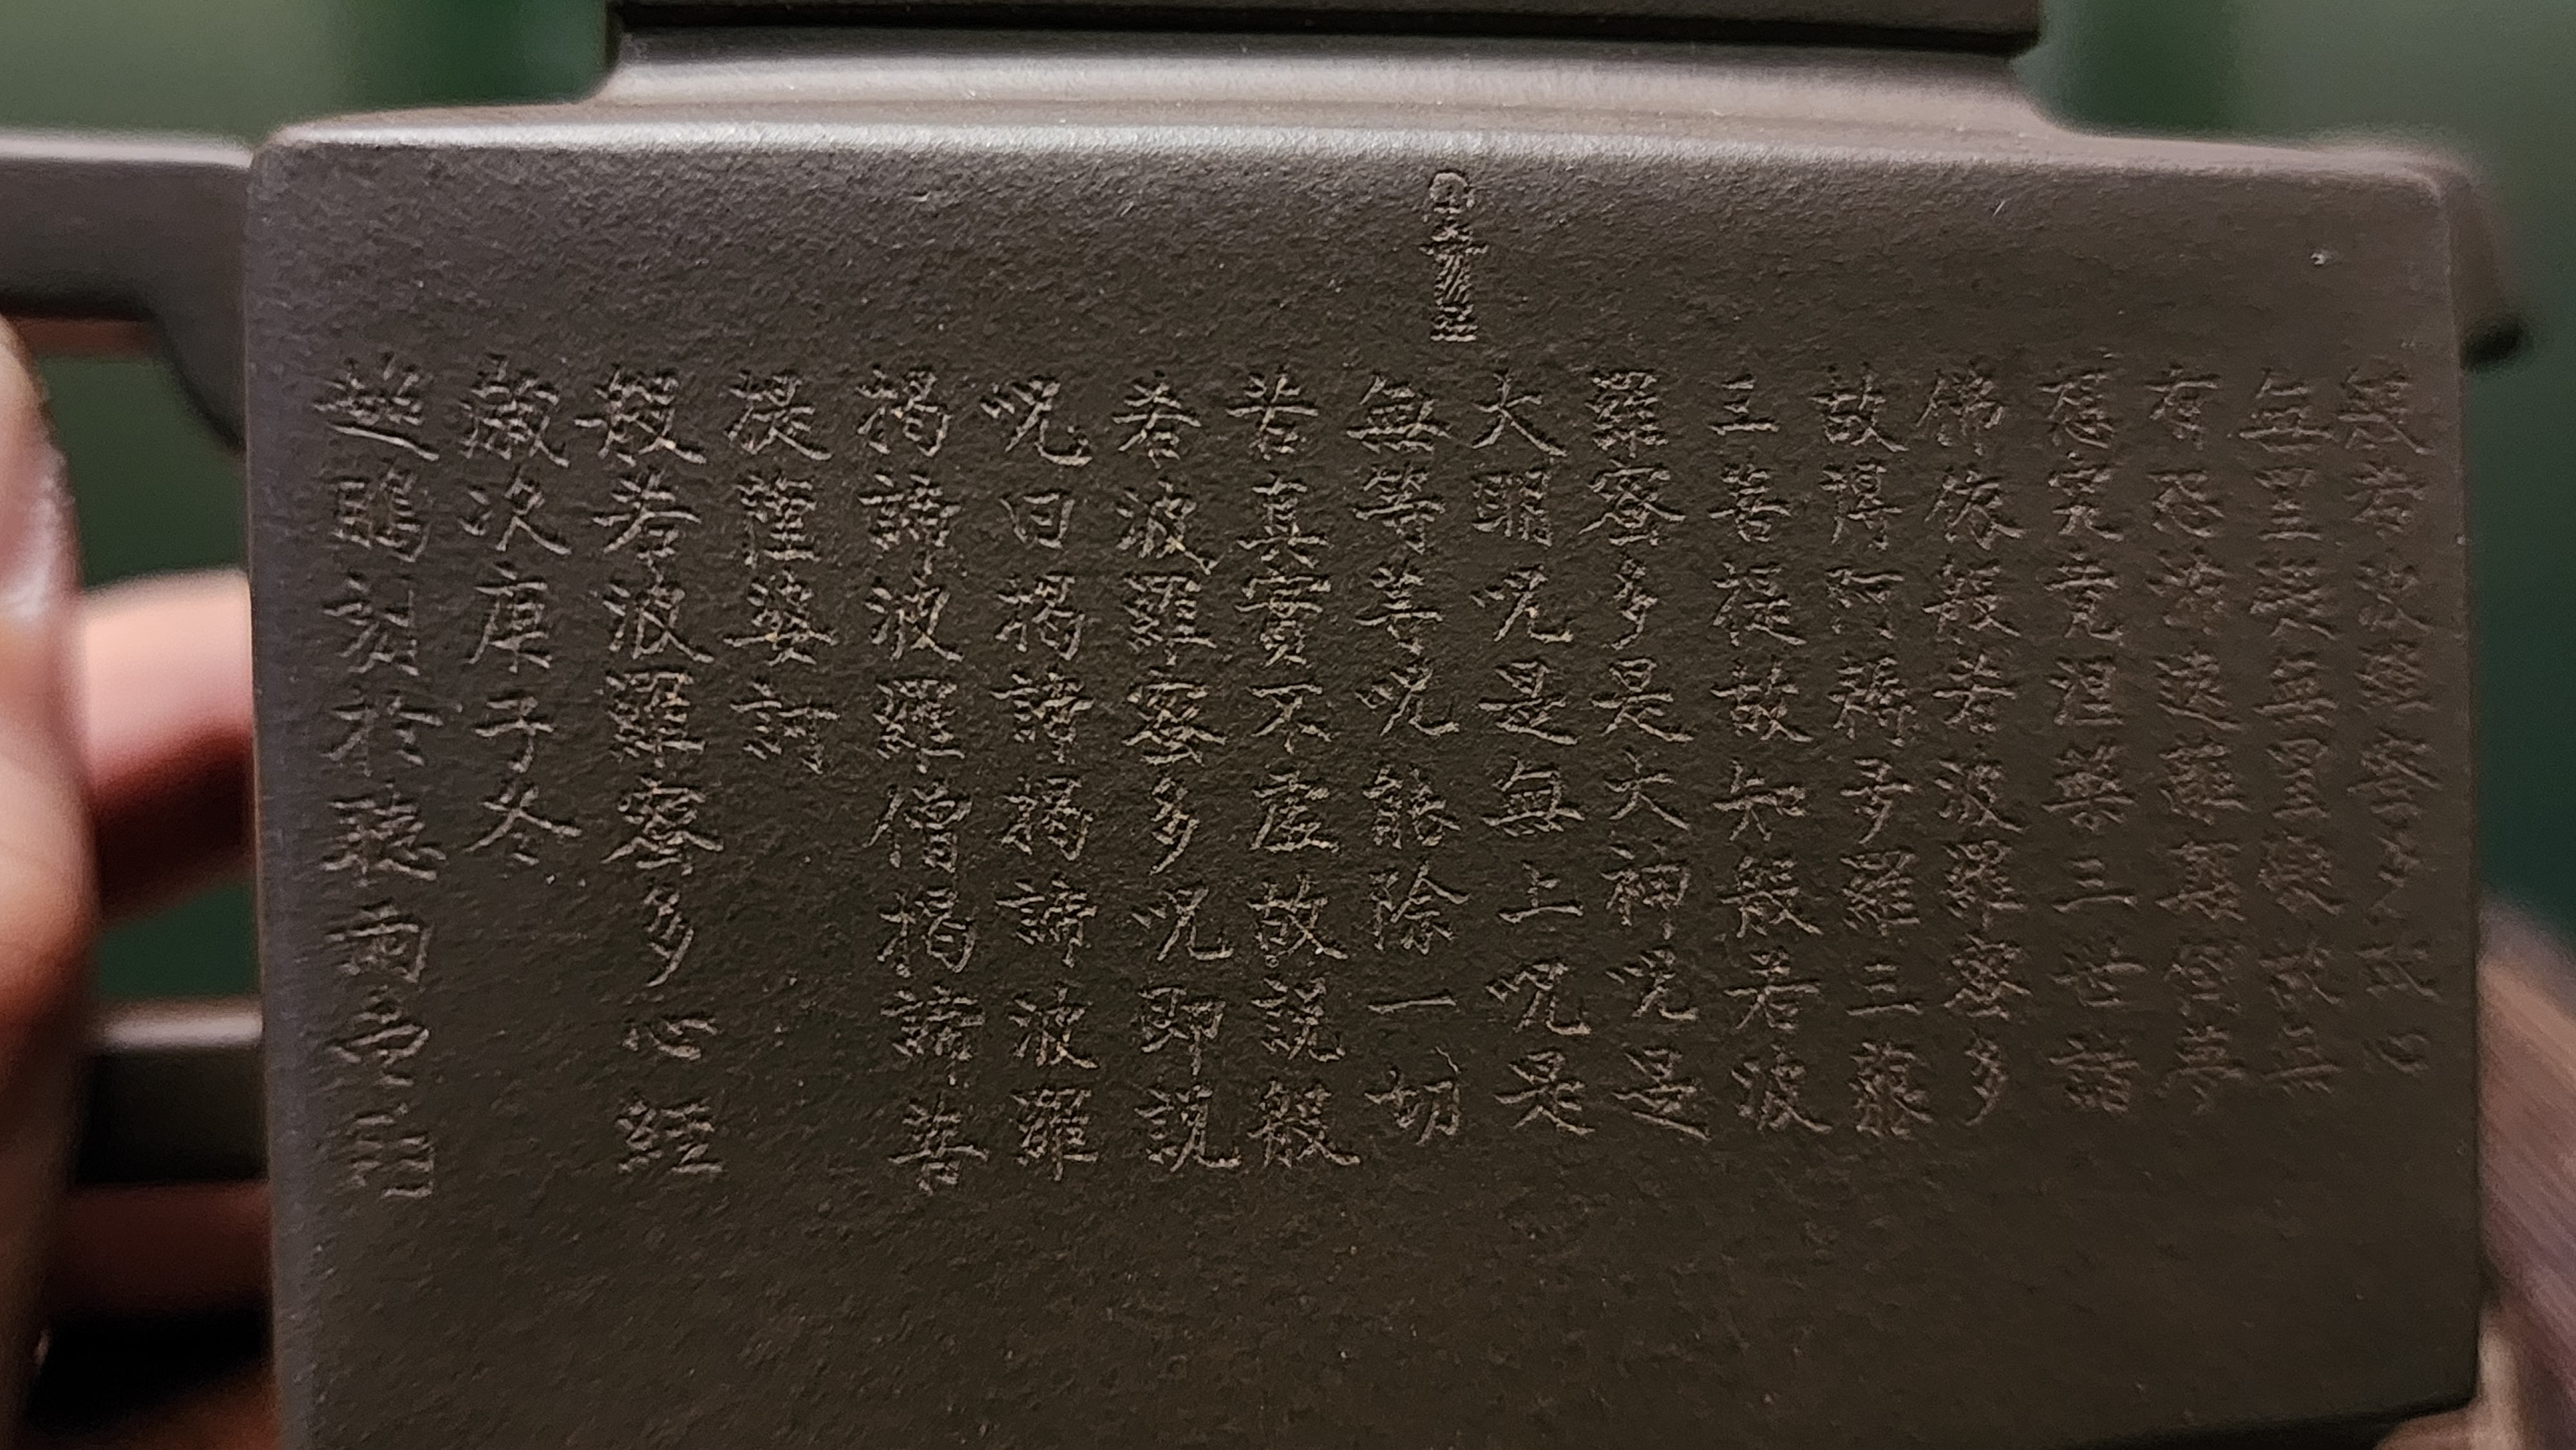 般若波羅密多故心
無罣礙無罣礙故無
有恐怖遠離顛倒夢
想究竟涅槃三世諸
佛依般若波羅密多
故得阿耨多羅三藐
三菩提故知般若波
羅密多是大神呪是
大明呪是無上呪是
無等等呪能除一切
苦真實不虛故說般
若波羅密多呪即說
呪曰揭諦揭諦波羅
揭諦波羅僧揭諦菩
提薩婆訶
般若波羅密多心經
歲次庚子冬
刻於聽雨